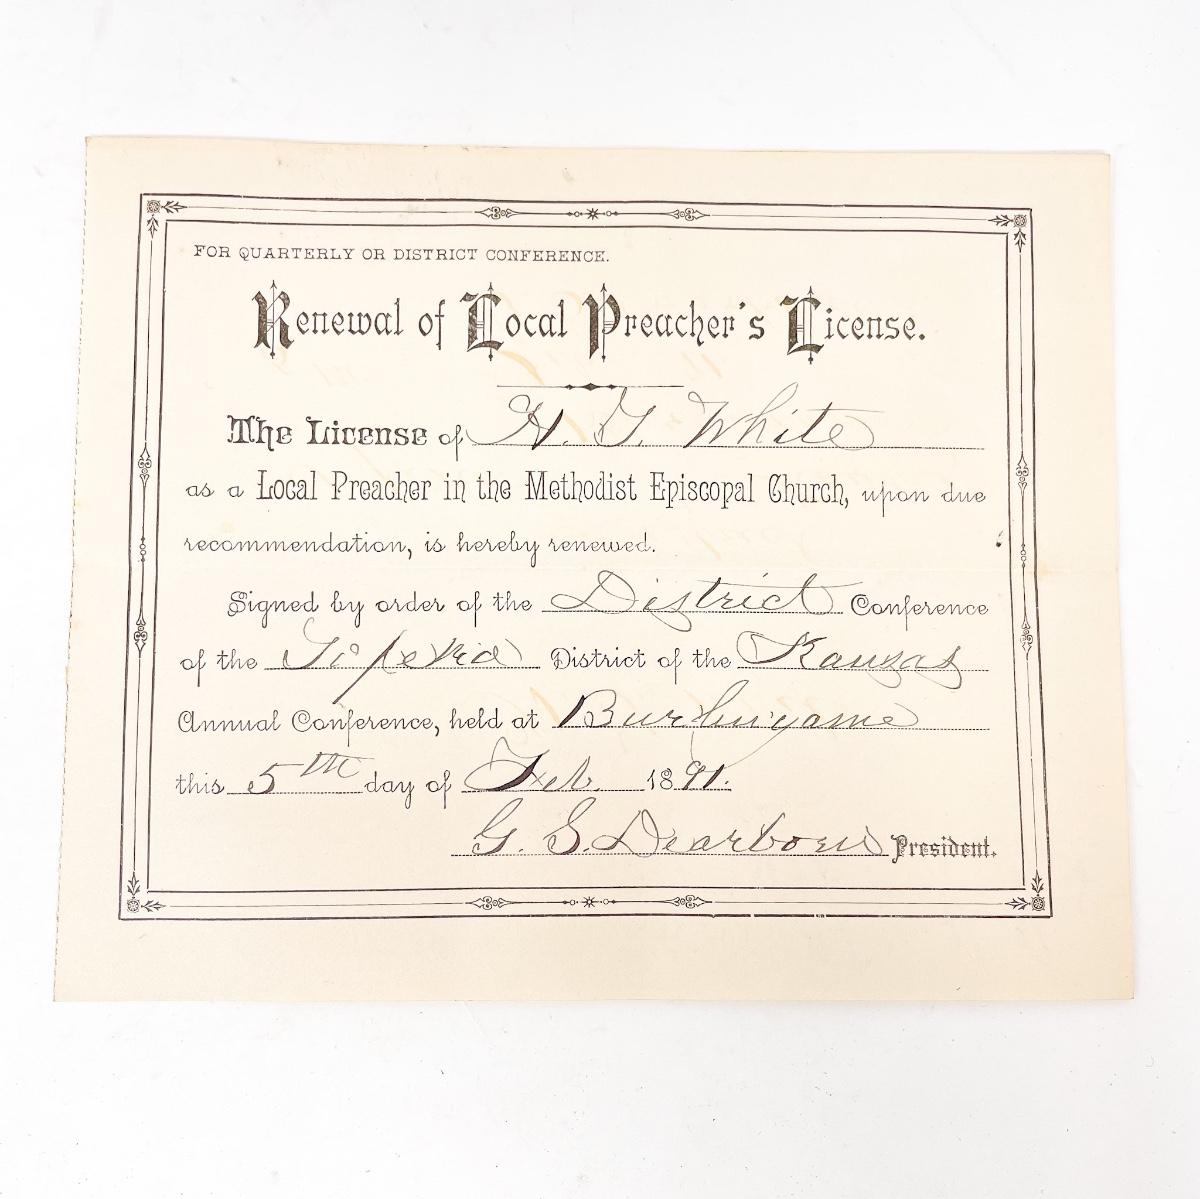 FOR QUARTERLY OR DISTRICT CONFERENCE.
Renewal of Local Preacher's License.
The License of H. G. White
as a Local Preacher in the Methodist Episcopal Church, upon due
recommendation, is hereby renewed.
Signed by order of the District Conference
of the Topeka District of the Kansas
Annual Conference, held at Burlingame
this 5th day of Feb. 1891.
G. S. Dearborn President.